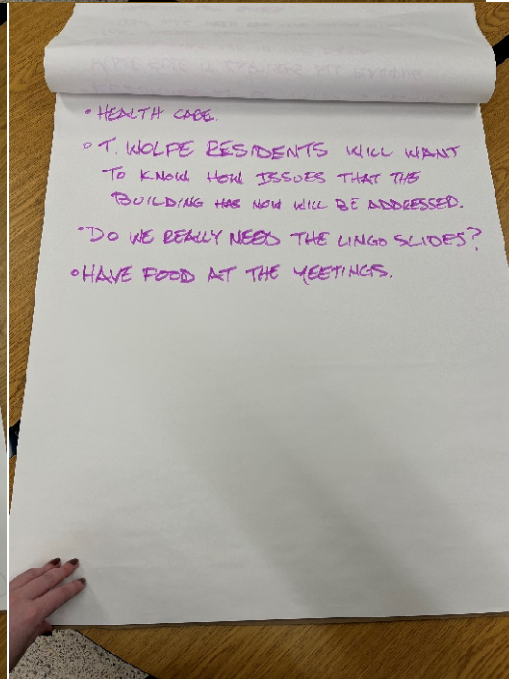 • HEALTH CARE.
• T. WOLFE RESIDENTS WILL WANT
TO KNOW HOW ISSUES THAT THE
BUILDING HAS NOW WILL BE ADDRESSED.
• DO WE REALLY NEED THE LINGO SLIDES?
• HAVE FOOD AT THE MEETINGS.